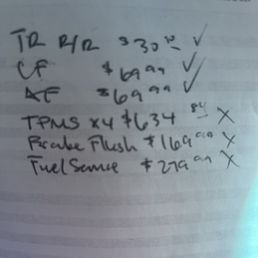 TR R/R $30 ✓
CF $69.99 ✓
AF $69.99 ✓
TPMS x4 $634.84 X
Brake Flush $169.99 X
Fuel Service $279.99 X